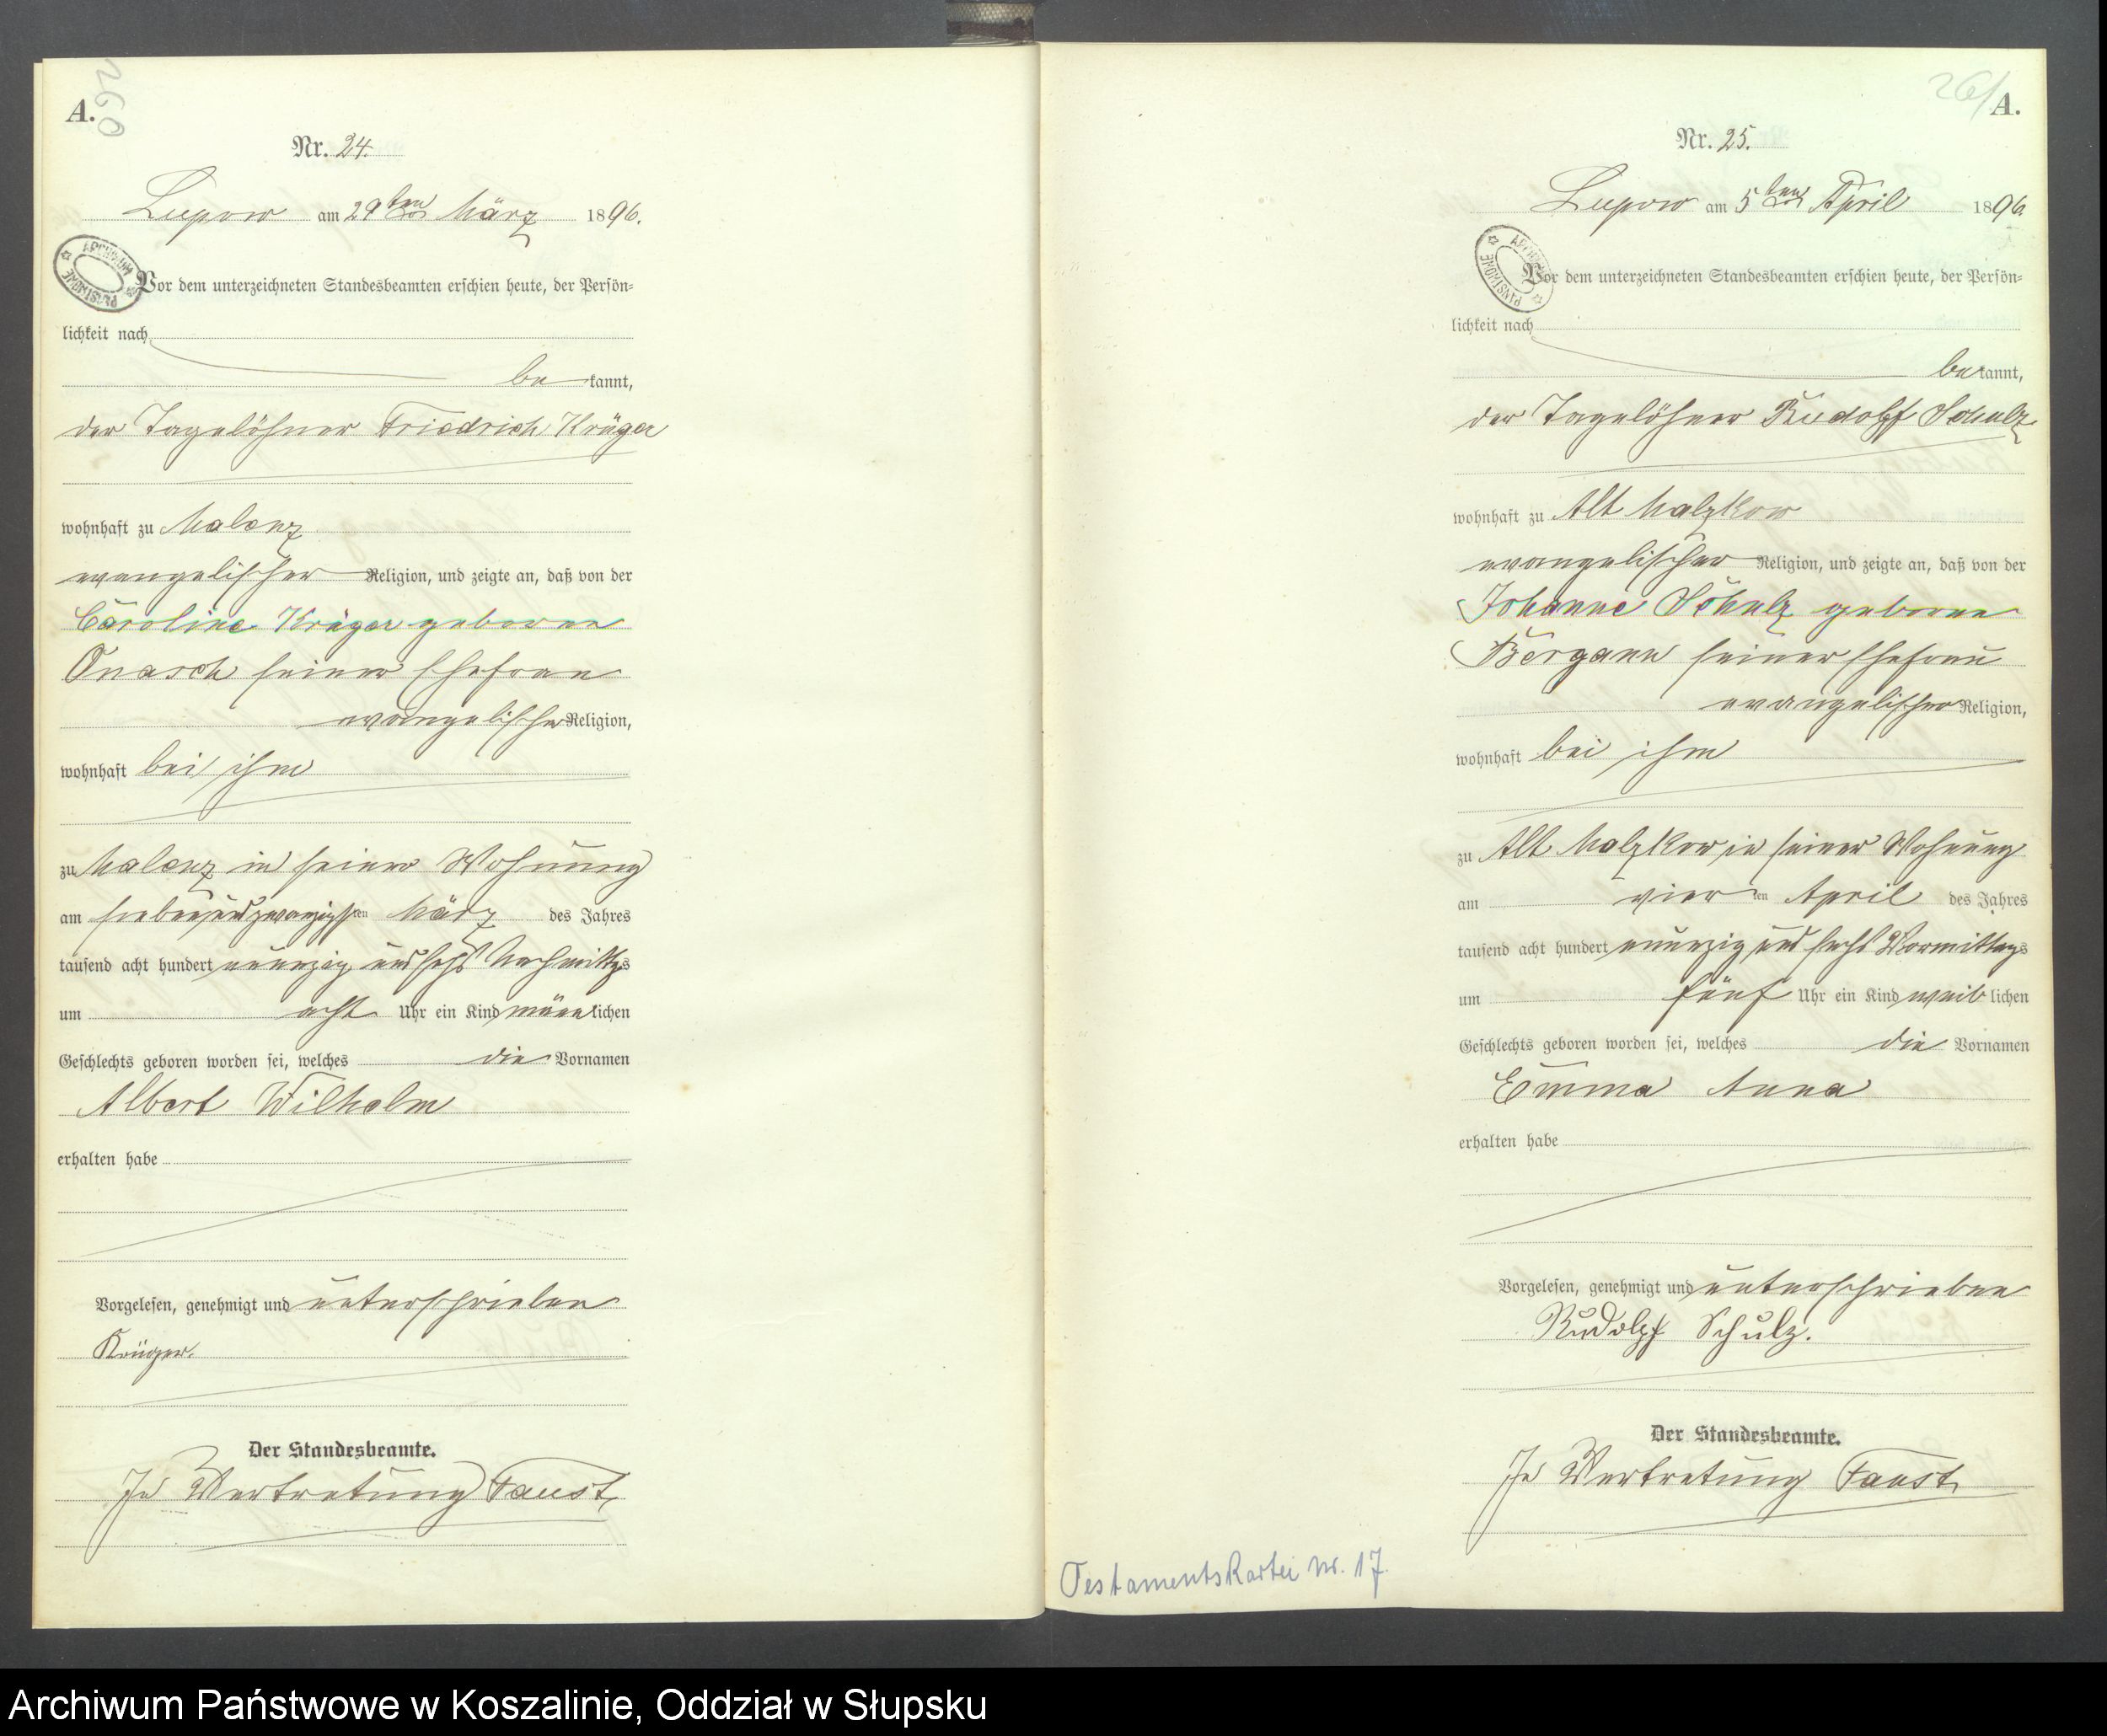 260
A.
Nr. 24.
Lupow am 29ten März 1896.
Vor dem unterzeichneten Standesbeamten erschien heute, der Persön-
lichkeit nach
bekannt,
der Tagelöhner Friedrich Krüger
wohnhaft zu Malenz
evangelischer Religion, und zeigte an, daß von der
Caroline Krüger geborne
Onasch seiner Ehefrau
evangelischer Religion,
wohnhaft bei ihm
zu Malenz in seiner Wohnung
am siebenundzwanzigsten März des Jahres
tausend acht hundert neunzig und sechs Nachmittgs
um acht Uhr ein Kind männlichen
Geschlechts geboren worden sei, welches die Vornamen
Albert Wilhelm
erhalten habe
Vorgelesen, genehmigt und unterschrieben
Krüger.
Der Standesbeamte.
In Vertretung Faust
261
A.
Nr. 25.
Lupow am 5ten April 1896.
Vor dem unterzeichneten Standesbeamten erschien heute, der Persön-
lichkeit nach
bekannt,
der Tagelöhner Rudolf Schulz
wohnhaft zu Alt Malzkow
evangelischer Religion, und zeigte an, daß von der
Johanne Schulz geborne
Bergann seiner Ehefrau
evangelischer Religion,
wohnhaft bei ihm
zu Alt Malzkow in seiner Wohnung
am vierten April des Jahres
tausend acht hundert neunzig und sechs Vormittags
um fünf Uhr ein Kind weiblichen
Geschlechts geboren worden sei, welches die Vornamen
Emma Anna
erhalten habe
Vorgelesen, genehmigt und unterschrieben
Rudolpf Schulz.
Der Standesbeamte.
In Vertretung Faust
Testamentskartei Nr. 17.
Archiwum Państwowe w Koszalinie, Oddział w Słupsku